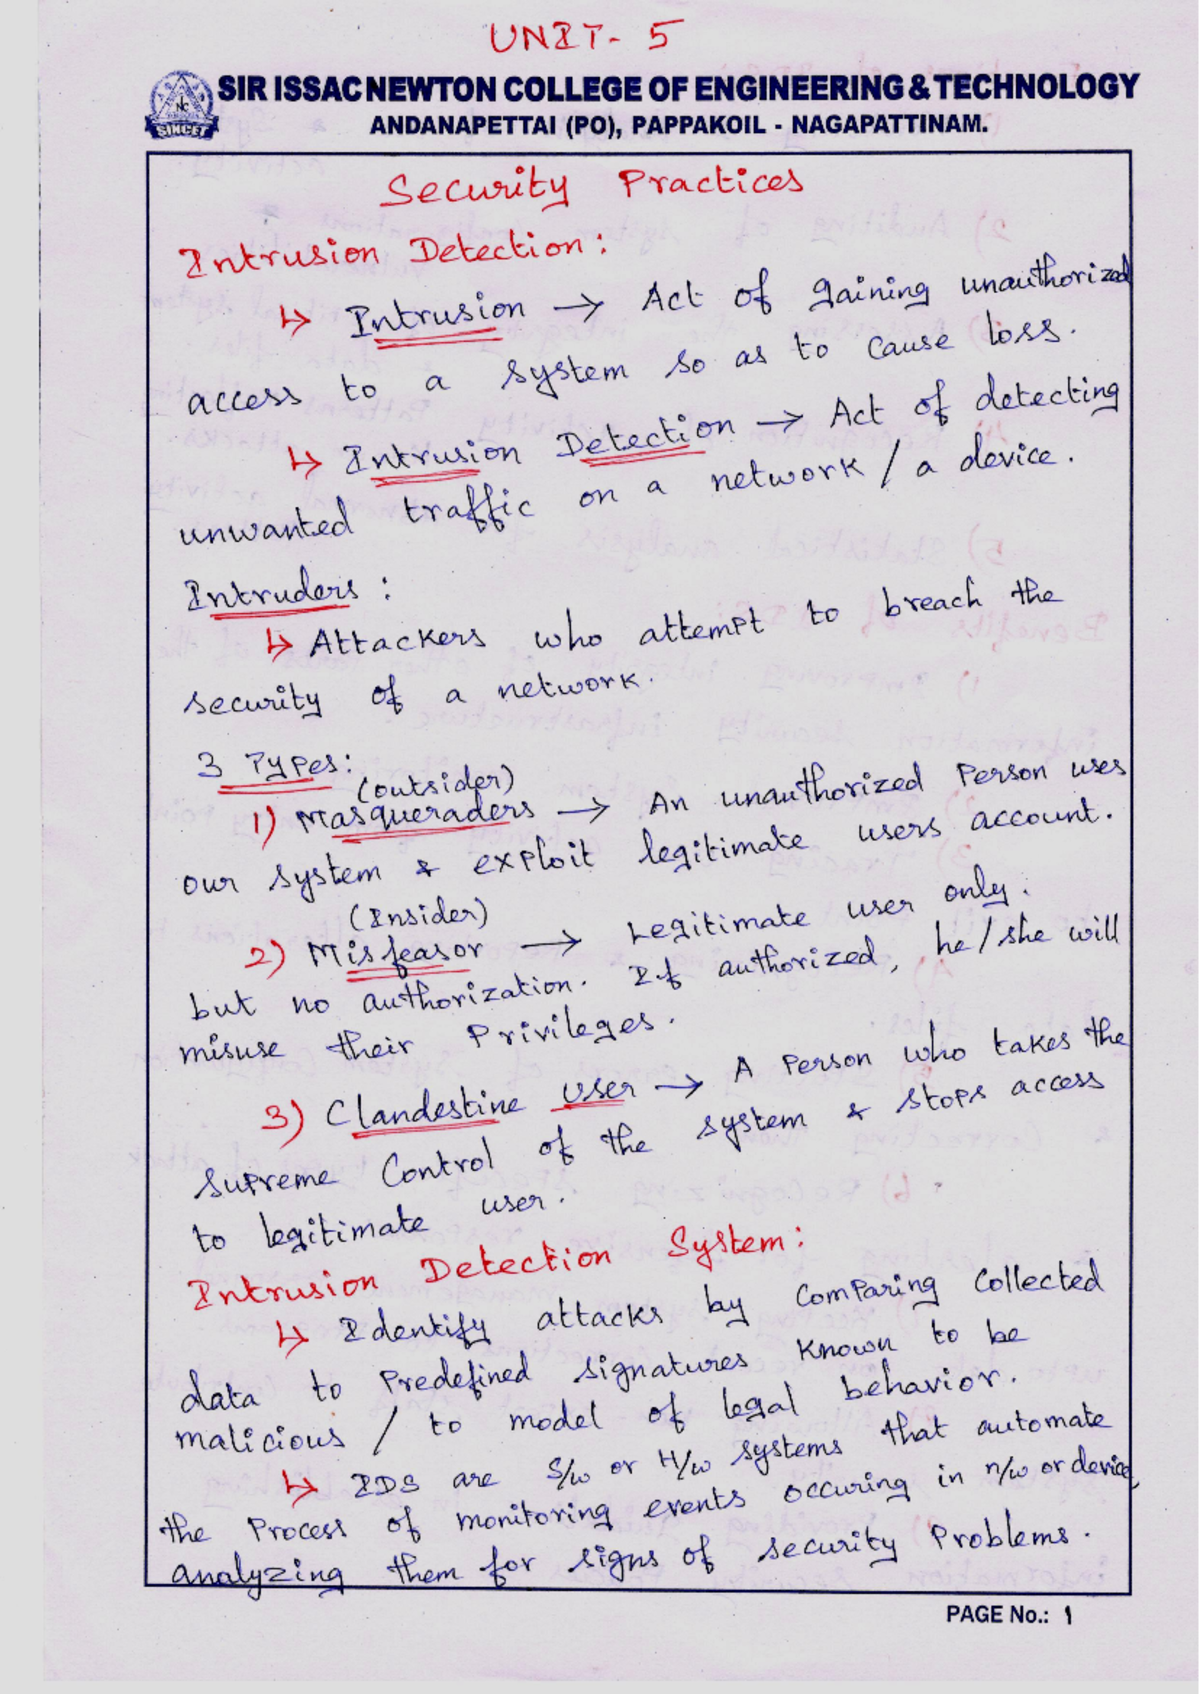 UNIT - 5
SIR ISSAC NEWTON COLLEGE OF ENGINEERING & TECHNOLOGY
ANDANAPETTAI (PO), PAPPAKOIL - NAGAPATTINAM.
SINCET
Security Practices
Intrusion Detection :
↳ Intrusion → Act of gaining unauthorized
access to a system so as to cause loss.
↳ Intrusion Detection → Act of detecting
unwanted traffic on a network / a device.
Intruders :
↳ Attackers who attempt to breach the
security of a network.
3 Types :
(outsider)
1) Masqueraders → An unauthorized Person uses
our system & exploit legitimate users account.
(Insider)
2) Misfeasor → Legitimate user only.
but no authorization. If authorized, he/she will
misuse their Privileges.
3) Clandestine user → A Person who takes the
supreme Control of the system & stops access
to legitimate user.
Intrusion Detection System :
↳ Identify attacks by comparing collected
data to Predefined signatures known to be
malicious / to model of legal behavior.
↳ IDS are S/w or H/w systems that automate
the Process of monitoring events occuring in n/w or device,
analyzing them for signs of security Problems.
PAGE No.: 1